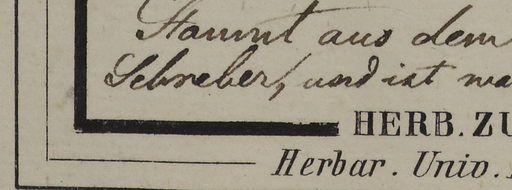 Stammt aus dem
Schreber, und ist
HERB. ZU
Herbar. Univ.